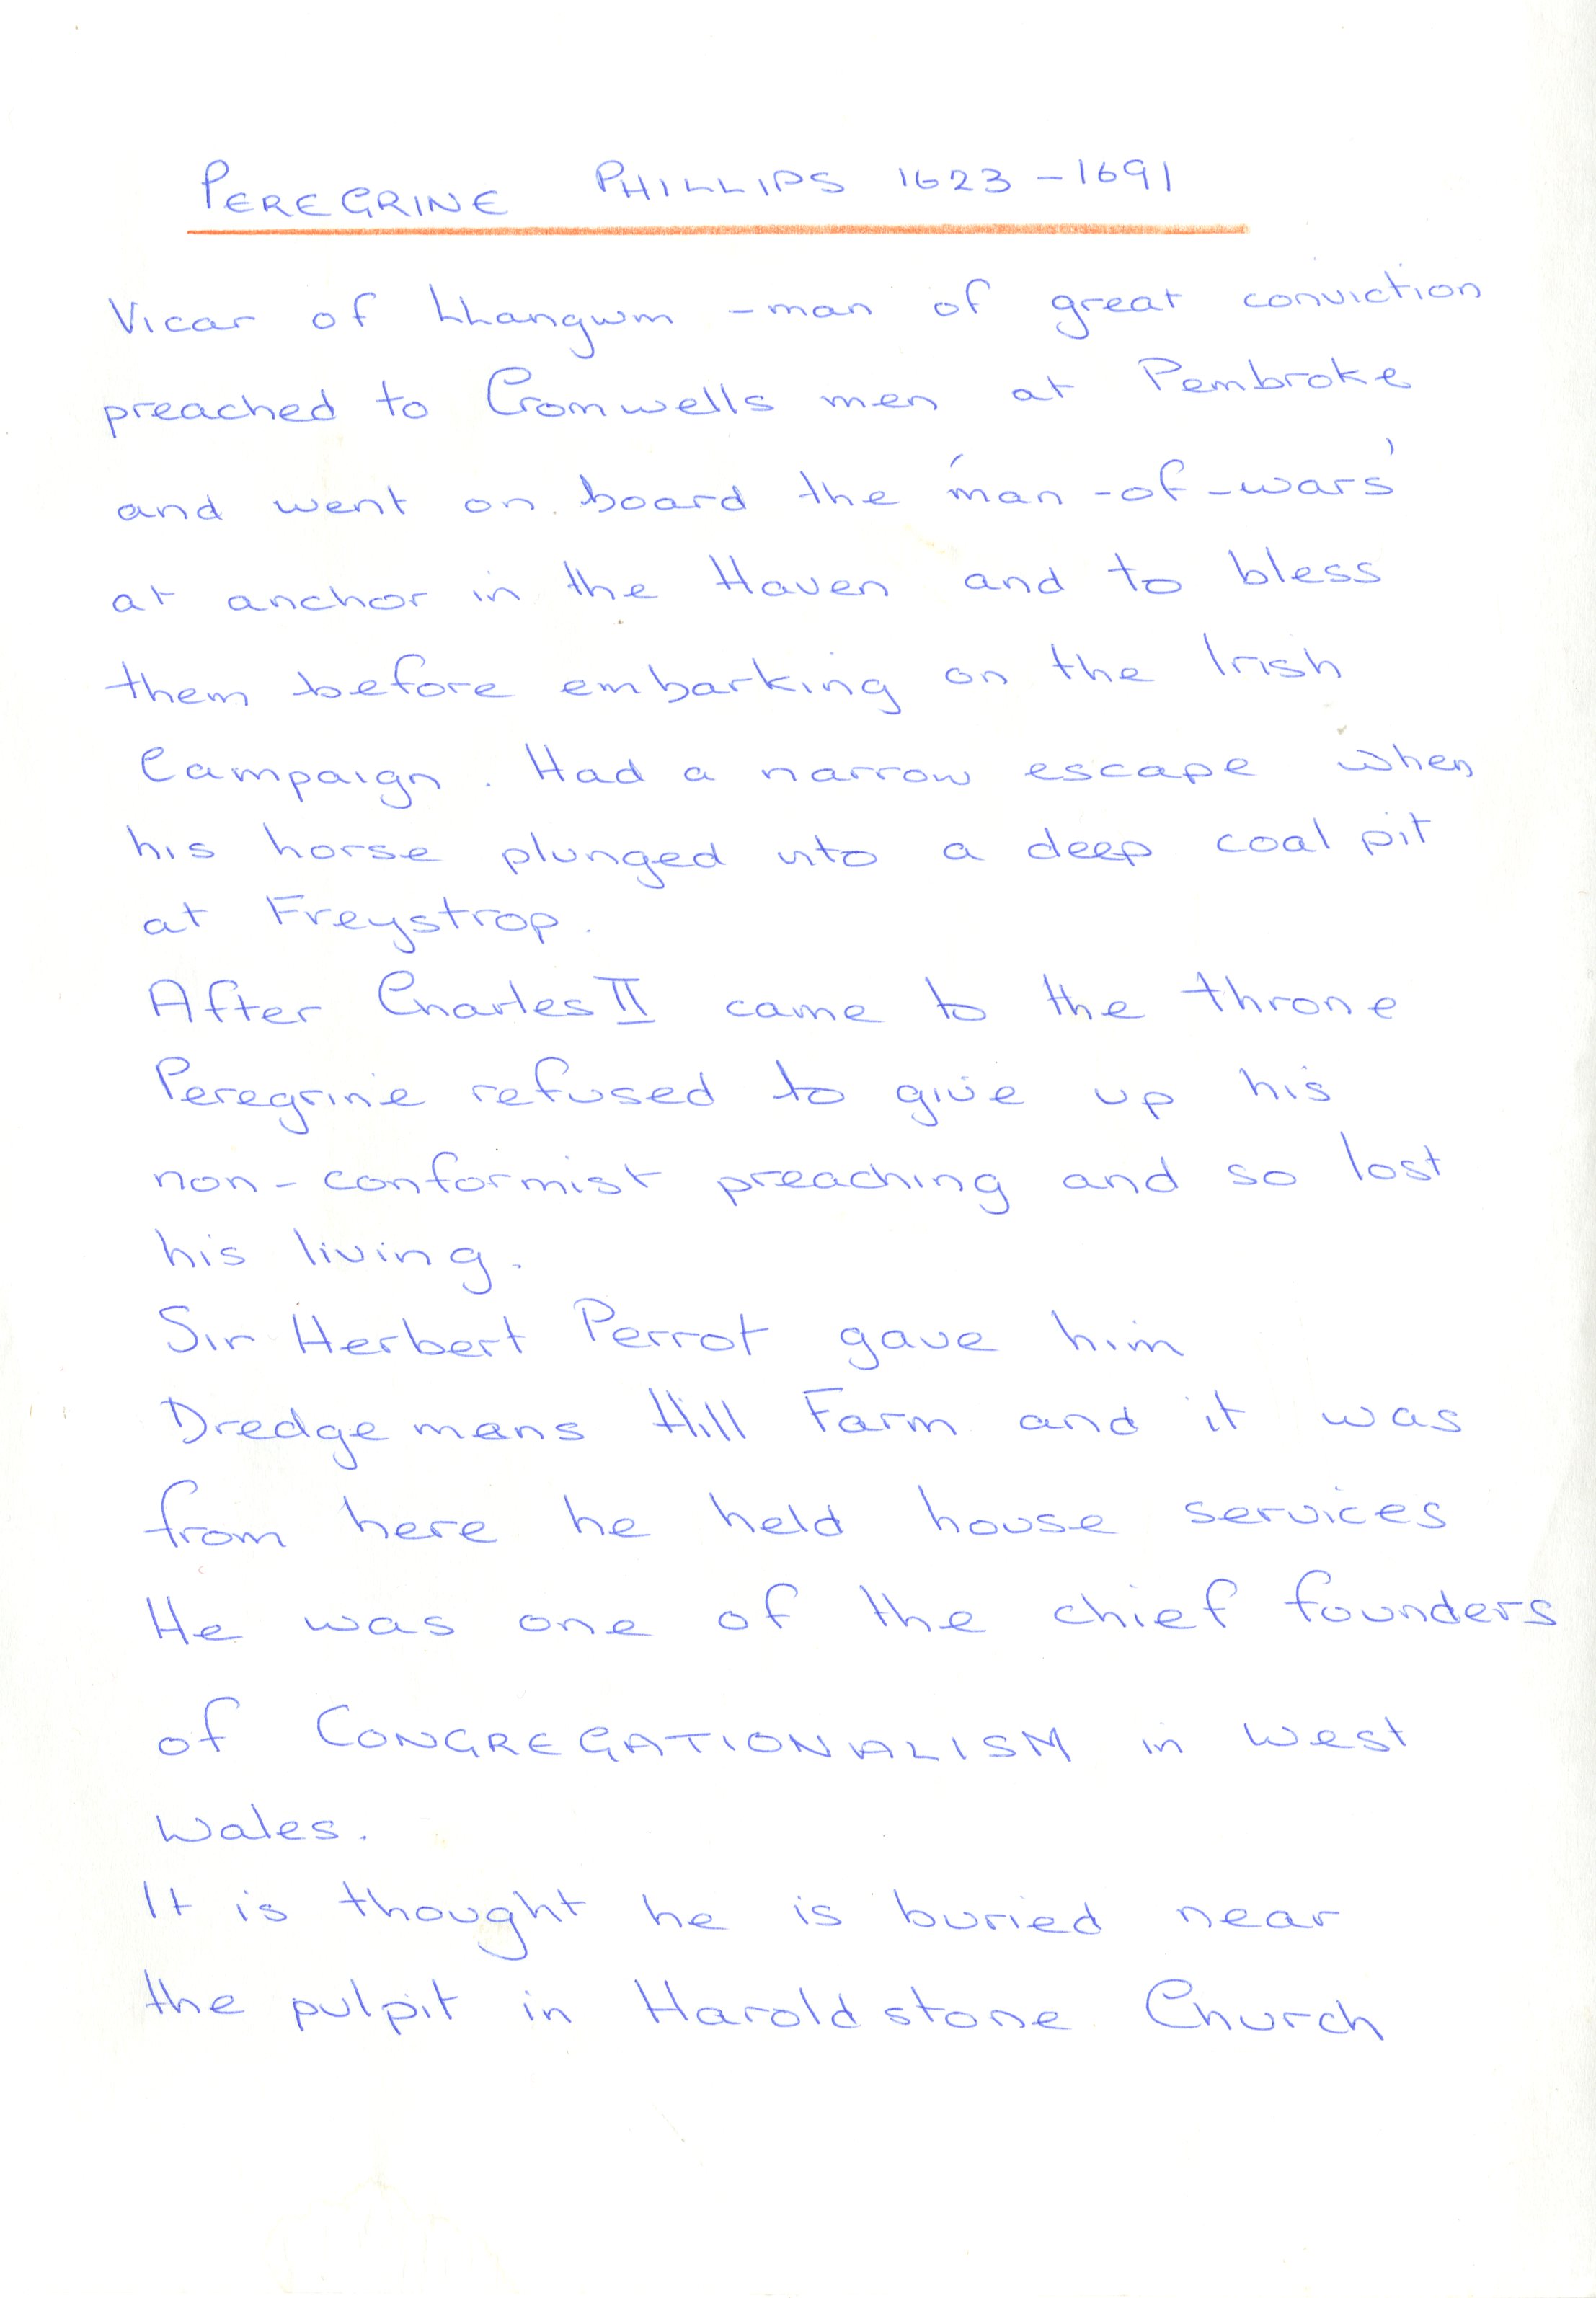 PEREGRINE PHILLIPS 1623 - 1691
Vicar of Llangwm - man of great conviction
preached to Cromwells men at Pembroke
and went on board the 'man-of-wars'
at anchor in the Haven and to bless
them before embarking on the Irish
Campaign. Had a narrow escape when
his horse plunged into a deep coal pit
at Freystrop.
After Charles II came to the throne
Peregrine refused to give up his
non-conformist preaching and so lost
his living.
Sir Herbert Perrot gave him
Dredgemans Hill Farm and it was
from here he held house services
He was one of the chief founders
of CONGREGATIONALISM in West
Wales.
It is thought he is buried near
the pulpit in Haroldstone Church